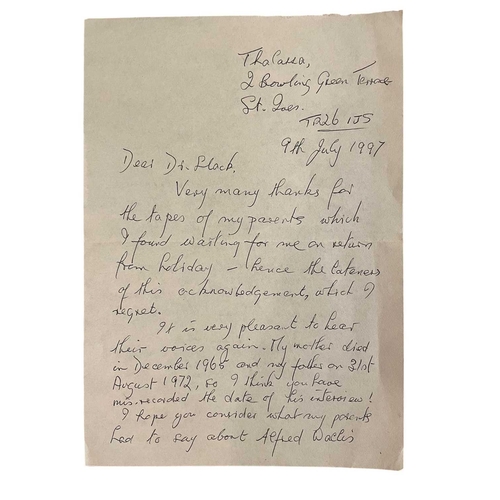 Thalassa,
2 Bowling Green Terrace
St. Ives.
TR26 1JS
9th July 1997
Dear Dr. Slack.
Very many thanks for
the tapes of my parents which
I found waiting for me on return
from holiday – hence the lateness
of this acknowledgement, which I
regret.
It is very pleasant to hear
their voices again. My mother died
in December 1965 and my father on 31st
August 1972, so I think you have
mis-recorded the date of his interview!
I hope you consider what my parents
had to say about Alfred Wallis